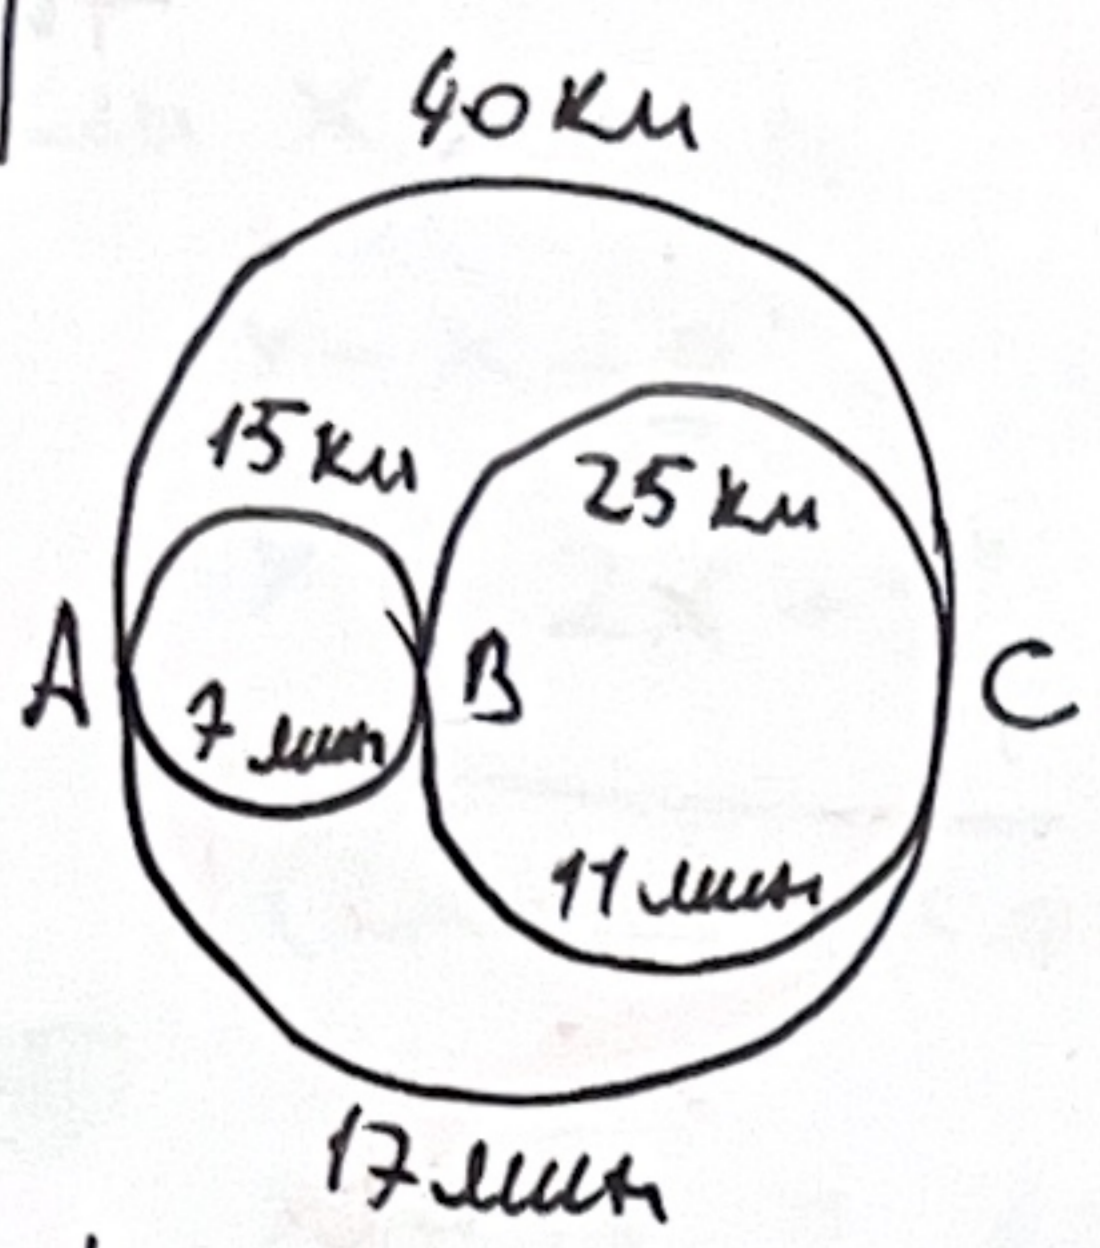 40 км
15 км
25 км
A
B
C
7 мин
11 мин
17 мин